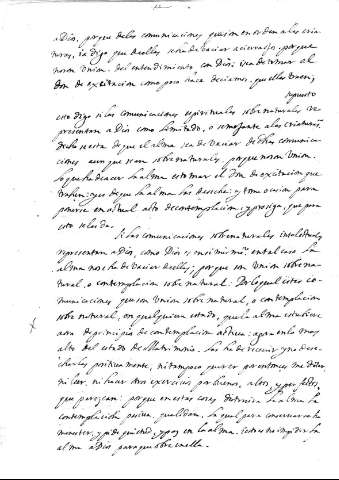 a Dios, porque de las comunicaciones que son en orden a las cria
turas, ya digo que de ellas se ha de vaciar acierta do, porque
no son Union del entendimiento con Dios; y ha de tomar el
don de excitacion como poco ha decíamos, que ellas traen;
supuesto
esto digo si las comunicaciones espirituales sobre naturales re
presentan a Dios como limitado, o semejante a las criaturas
dicho se esta de que el alma se ha de vaciar de dichas comunica
ciones aun que sean sobre naturales, porque no son Union.
lo que ha de hacer la alma es tomar el don de excitacion que
trahen: y es de que la alma las desecha: y tome ocasion para
ponerse en actual alto de contemplacion; y prosiga, que para
esto se le da.
Si las comunicaciones sobre naturales intelectuales
representan a Dios, como Dios es en si mismo, en tal caso la
alma no se ha de vaciar de ellas; porque son Union sobre na
tural, o contemplacion sobre natural. Por lo qual estas co
municaciones que son Union sobre natural, o contemplacion
sobre natural, en qualquiera estado, que la alma estubiere
aora de principio de contemplacion activa: aora en lo mas
alto del estado de Matrimonio. Las ha de recivir y no dese
charlas positivamente, ni tampoco querer por entonces meditar,
ni leer, ni hacer otros exercicios por buenos, altos, y perfectos,
que parezcan: porque en estas cosas destruira la alma la
contemplacion pasiva, que le dan, la qual para conservarse ha
menester, y pide quietud, y paz en la alma. Esto es no impedir la
alma a Dios para que obre en ella.